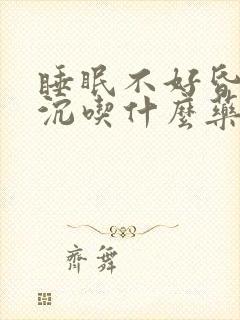 睡眠不好昏
沉喫什麼藥
齊舞